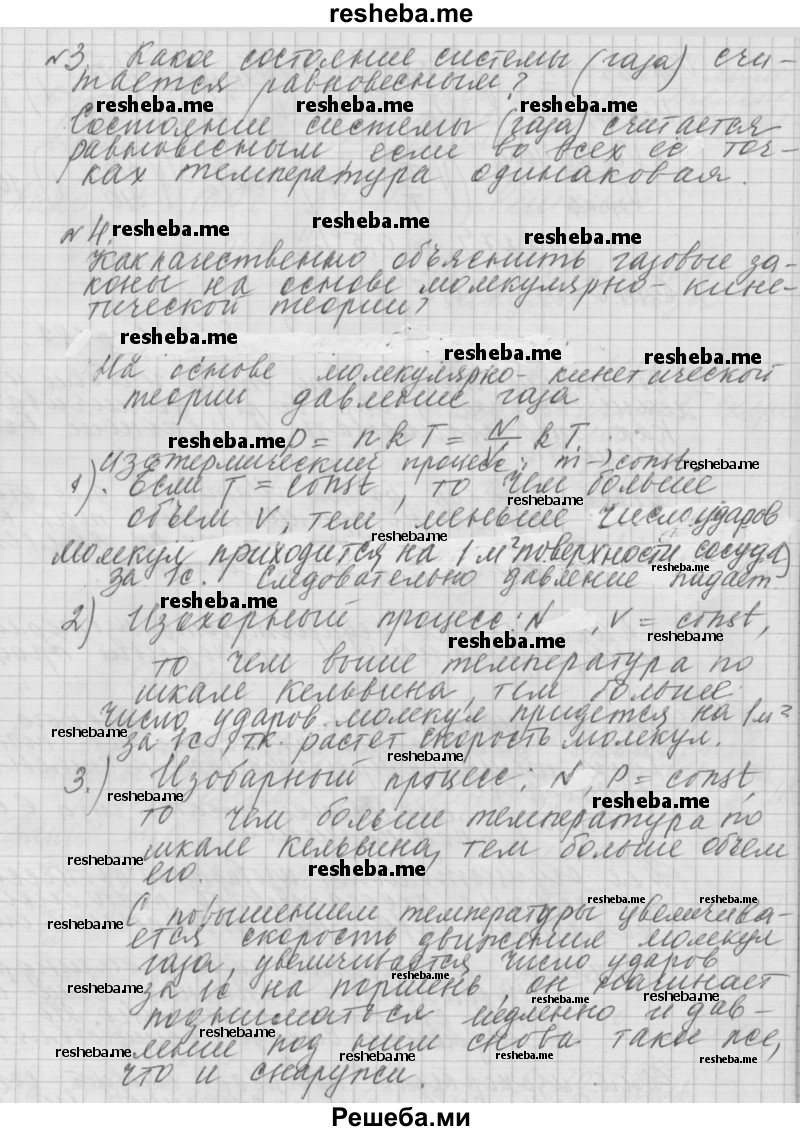 resheba.me
№3. Какое состояние системы (газа) счи-
тается равновесным?
resheba.me resheba.me resheba.me
Состояние системы (газа) считается
равновесным если во всех её точ-
ках температура одинаковая.
№4. resheba.me resheba.me resheba.me
Как качественно объяснить газовые за-
коны на основе молекулярно-кине-
тической теории?
resheba.me resheba.me resheba.me
На основе молекулярно-кинетической
теории давление газа
resheba.me P = nkT = N/V kT
Изотермический процесс: m → const
1). Если T = const, то чем больше
объем V, тем меньше число ударов
resheba.me
молекул приходится на 1 м² поверхности сосуда
за 1с. Следовательно давление падает.
resheba.me
resheba.me
2) Изохорный процесс: N, V = const,
resheba.me resheba.me
то чем выше температура по
шкале Кельвина, тем больше
число ударов молекул придется на 1м²
resheba.me
за 1с, т.к. растет скорость молекул.
resheba.me
3.) Изобарный процесс: N, P = const,
resheba.me resheba.me
то чем больше температура по
шкале Кельвина, тем больше объем
resheba.me
его. resheba.me
resheba.me resheba.me
С повышением температуры увеличива-
resheba.me
ется скорость движения молекул
газа, увеличивается число ударов
resheba.me
за 1с на поршень, он начинает
resheba.me resheba.me resheba.me
подниматься медленно и дав-
resheba.me
ление под ним снова такое же,
resheba.me resheba.me resheba.me
что и снаружи.
Решеба.ми